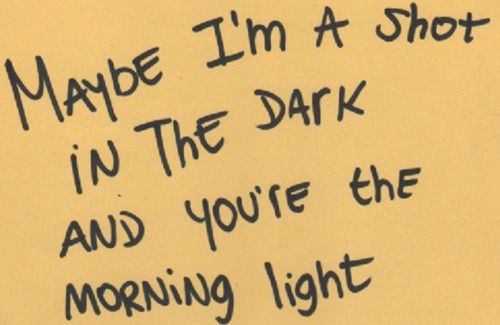 MAYBE I'm A Shot
iN ThE DArK
AND YOU'rE thE
MORNiNg light